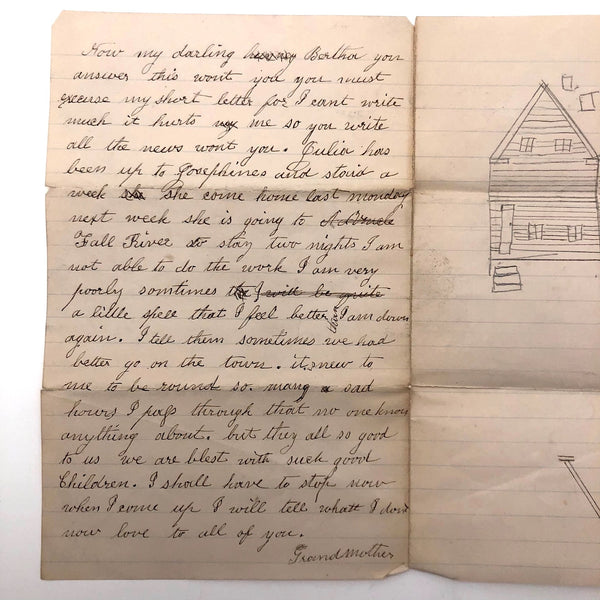 Now my darling Bertha you
answer this wont you you must
excuse my short letter for I cant write
much it hurts me so you write
all the news wont you. Julia has
been up to Josephines and staid a
week she come home last monday
next week she is going to
Fall River to stay two nights I am
not able to do the work I am very
poorly somtimes I will be quite
a little spell that I feel better then I am down
again. I tell them sometimes we had
better go on the town. it new to
me to be round so. many sad
hours I pass through that no one know
anything about. but they all so good
to us we are blest with such good
Children. I shall have to stop now
when I come up I will tell whatt I dont
now love to all of you.
Grandmother